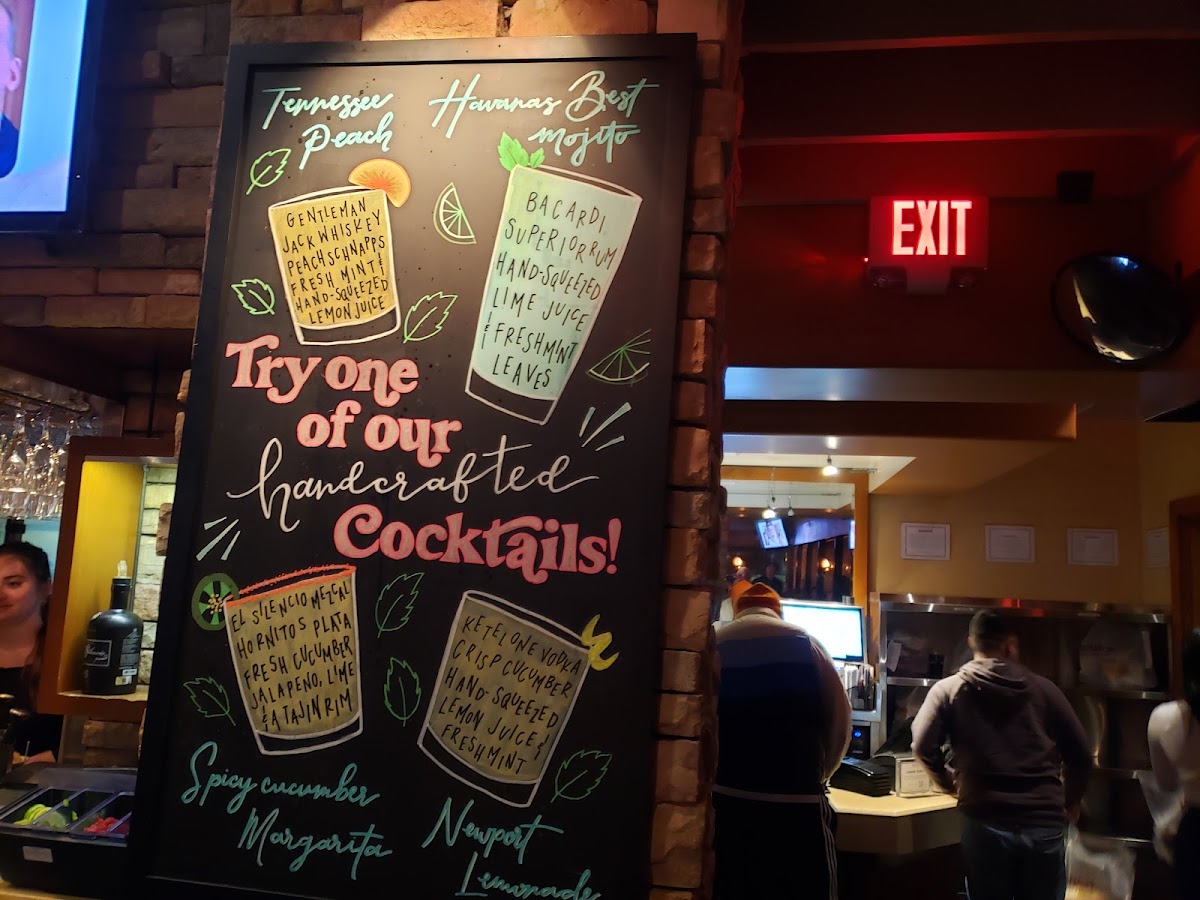 Tennessee
Peach
GENTLEMAN
JACK WHISKEY
PEACH SCHNAPPS
FRESH MINT &
HAND-SQUEEZED
LEMON JUICE
Havanas Best
Mojito
BACARDI
SUPERIOR RUM
HAND-SQUEEZED
LIME JUICE
& FRESH MINT
LEAVES
Try one
of our
handcrafted
Cocktails!
EL SILENCIO MEZCAL
HORNITOS PLATA
FRESH CUCUMBER
JALAPENO, LIME
& A TAJIN RIM
Spicy cucumber
Margarita
KETEL ONE VODKA
CRISP CUCUMBER
HAND-SQUEEZED
LEMON JUICE &
FRESH MINT
Newport
Lemonade
EXIT